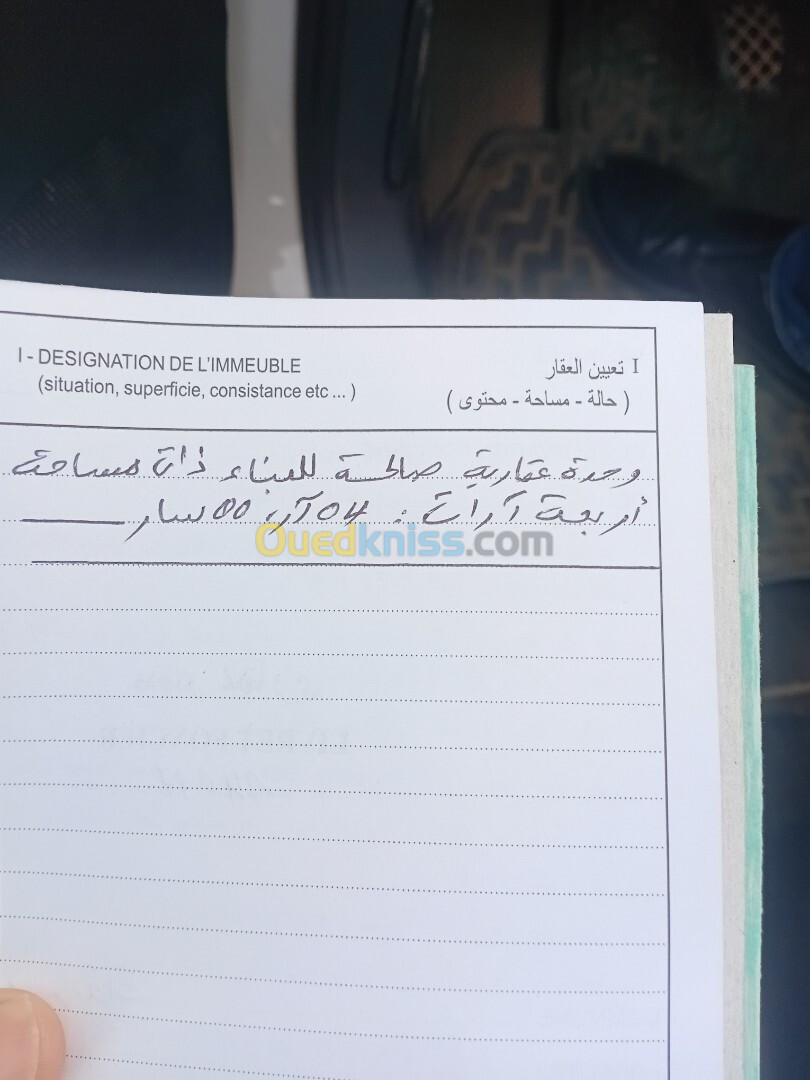 I - DESIGNATION DE L'IMMEUBLE
(situation, superficie, consistance etc ... )
I تعيين العقار
( حالة - مساحة - محتوى )
وحدة عقارية صالحة للبناء ذات مساحة
أربعة آرات : 04 آر، 00 سار
Ouedkniss.com